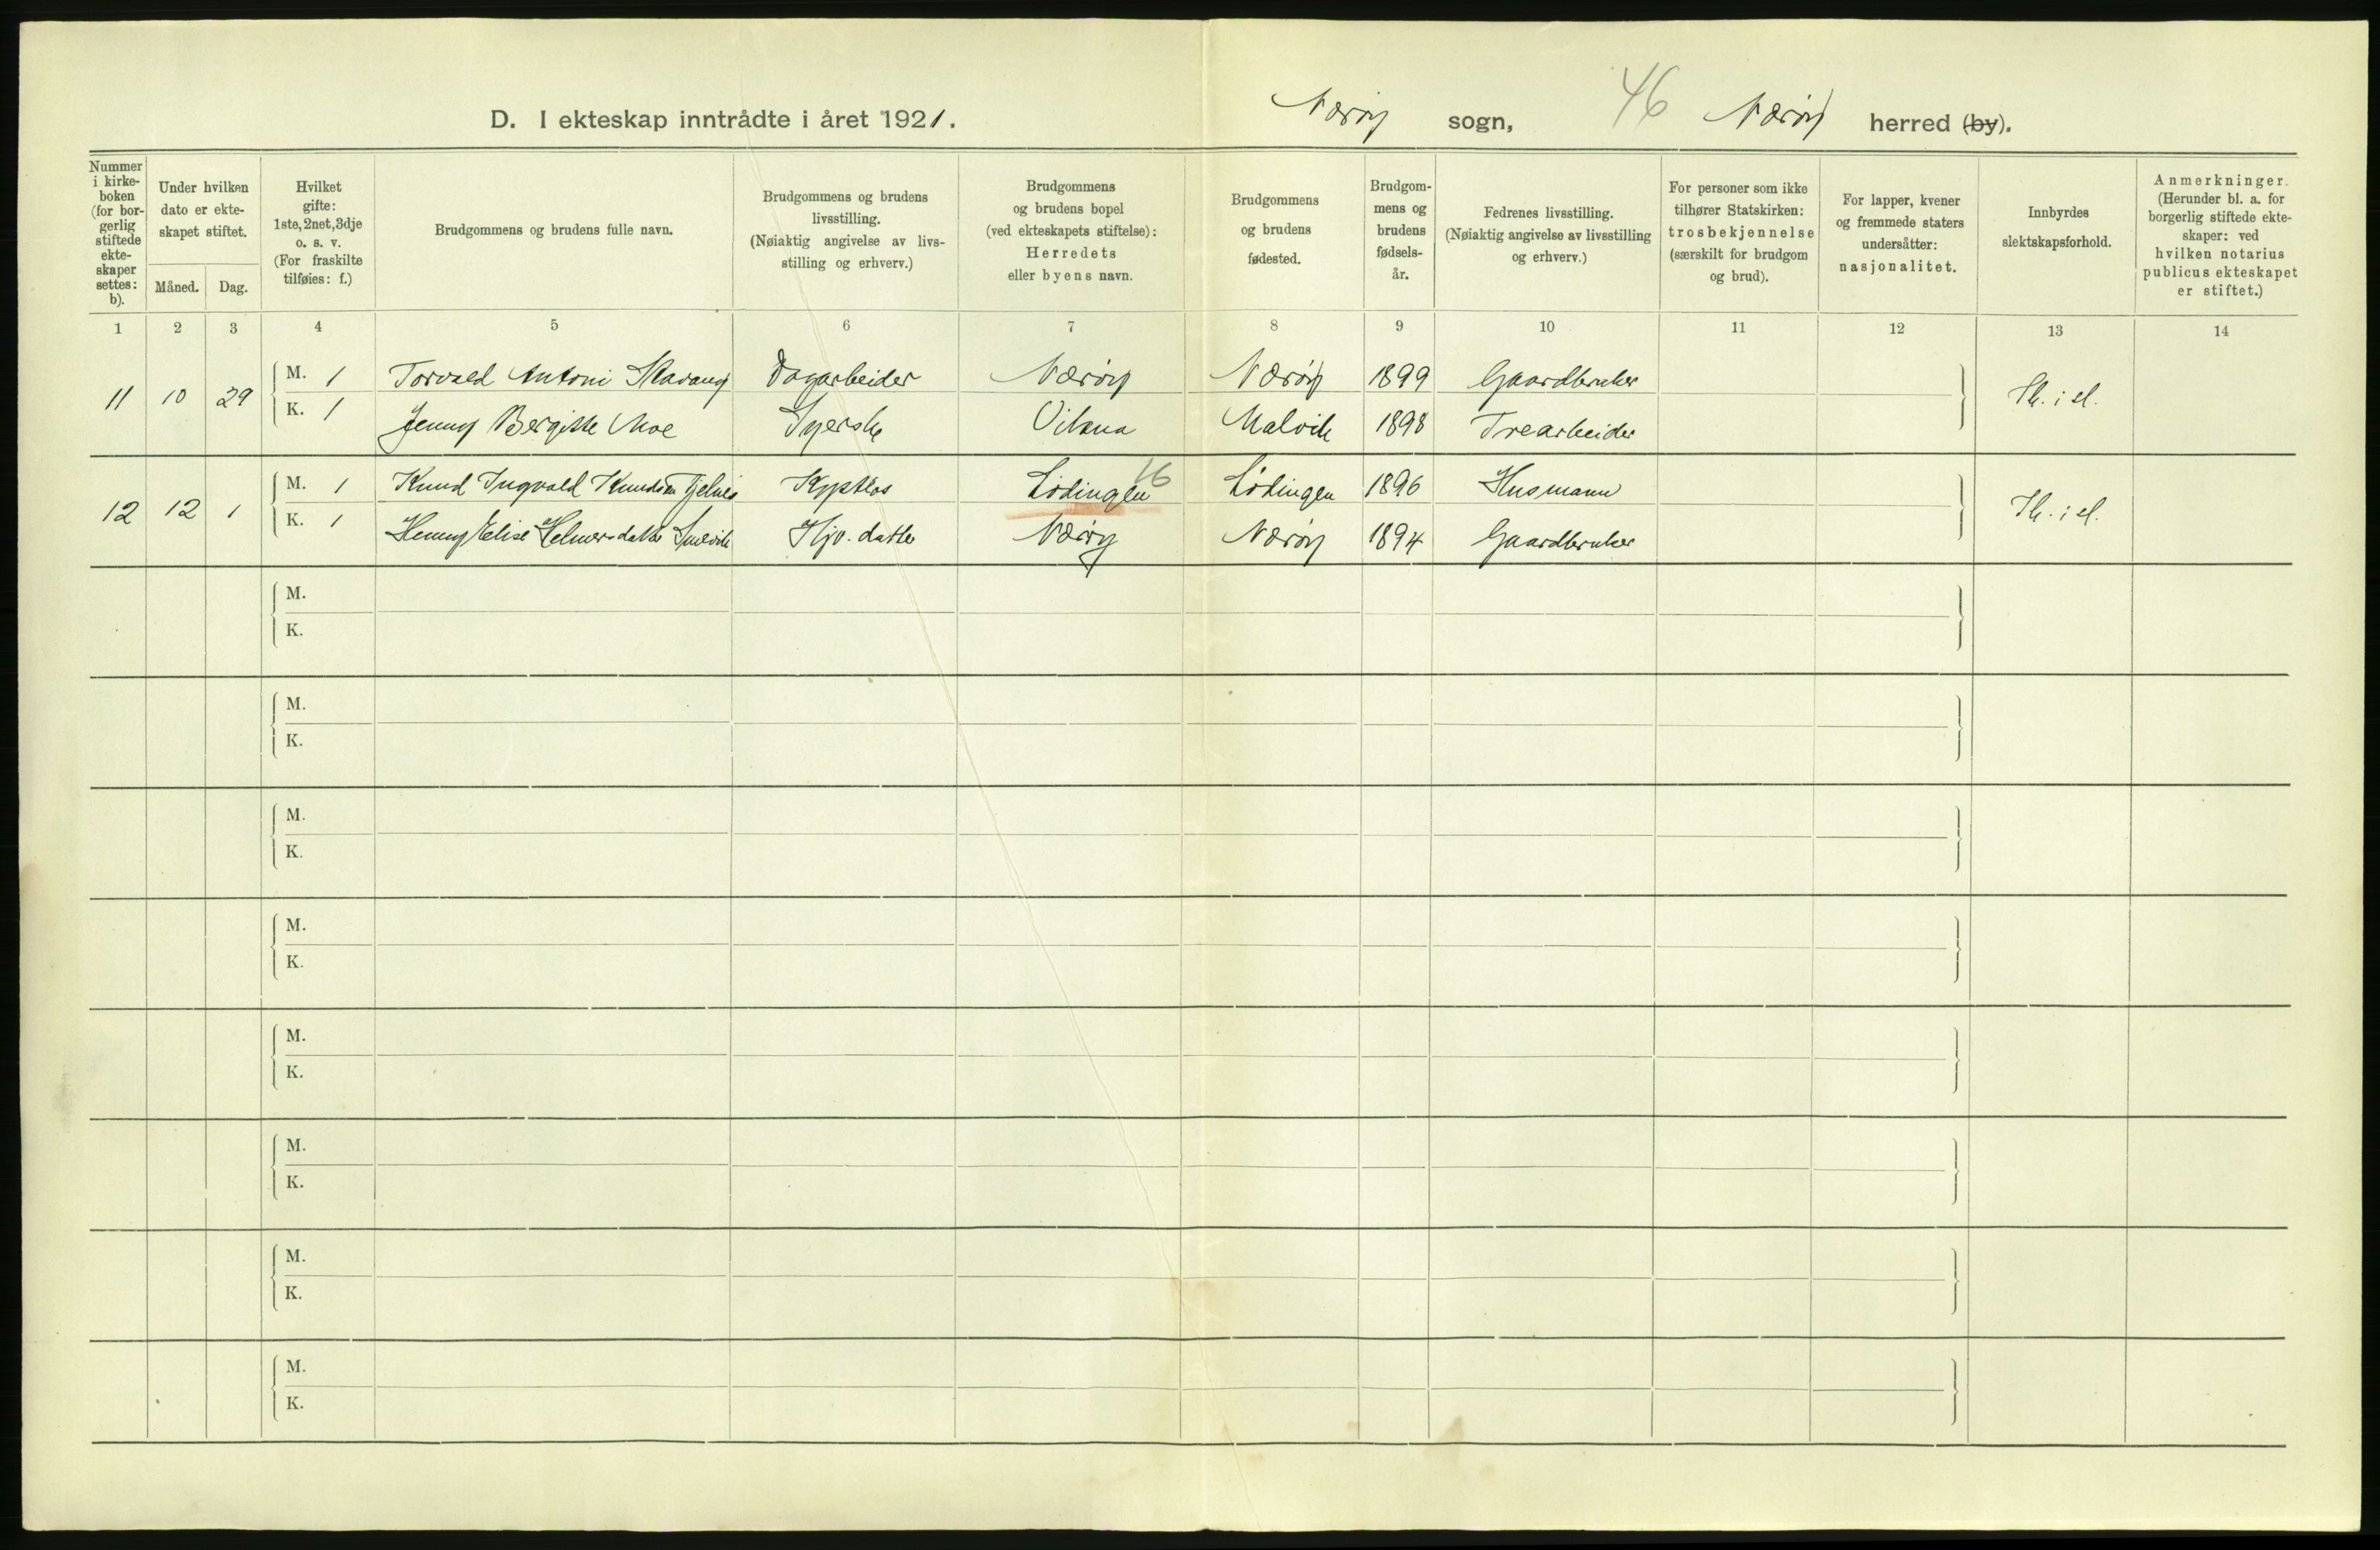 D. I ekteskap inntrådte i året 1921.
Nærøy sogn, 46 Nærøy herred (by).
Nummer i kirke-boken (for bor-gerlig stiftede ekte-skaper settes: b).
Under hvilken dato er ekte-skapet stiftet.
Måned. Dag.
Hvilket gifte: 1ste, 2net, 3dje o. s. v. (For fraskilte tilføies: f.)
Brudgommens og brudens fulle navn.
Brudgommens og brudens livsstilling. (Nøiaktig angivelse av livs-stilling og erhverv.)
Brudgommens og brudens bopel (ved ekteskapets stiftelse): Herredets eller byens navn.
Brudgommens og brudens fødested.
Brudgom-mens og brudens fødsels-år.
Fedrenes livsstilling. (Nøiaktig angivelse av livsstilling og erhverv.)
For personer som ikke tilhører Statskirken: trosbekjennelse (særskilt for brudgom og brud).
For lapper, kvener og fremmede staters undersåtter: nasjonalitet.
Innbyrdes slektskapsforhold.
Anmerkninger. (Herunder bl. a. for borgerlig stiftede ekte-skaper: ved hvilken notarius publicus ekteskapet er stiftet.)
1 2 3 4 5 6 7 8 9 10 11 12 13 14
11 10 29 M. 1 Torvald Antoni Skavang Dagarbeider Nærøy Nærøy 1899 Gaardbruker
K. 1 Jenny Bergitte Moe Syerske Vikna Malvik 1898 Trearbeider
12 12 1 M. 1 Knud Ingvald Knudsen Lødingen 16 Lødingen 1896 Husmann
K. 1 Henny Elise Helmersdatter Hjv. datter Nærøy Nærøy 1894 Gaardbruker
M.
K.
M.
K.
M.
K.
M.
K.
M.
K.
M.
K.
M.
K.
M.
K.